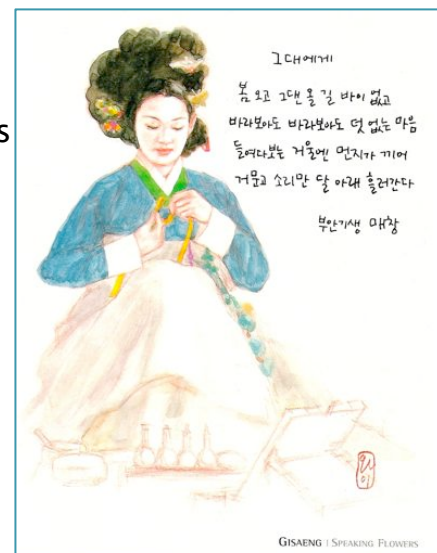 s
그대에게
봄 오고 그댄 올 길 바이 없고
바라보아도 바라보아도 덧 없는 마음
들여다보는 거울엔 먼지가 끼어
거문고 소리만 달 아래 흘러간다
부안기생 매창
GISAENG | SPEAKING FLOWERS